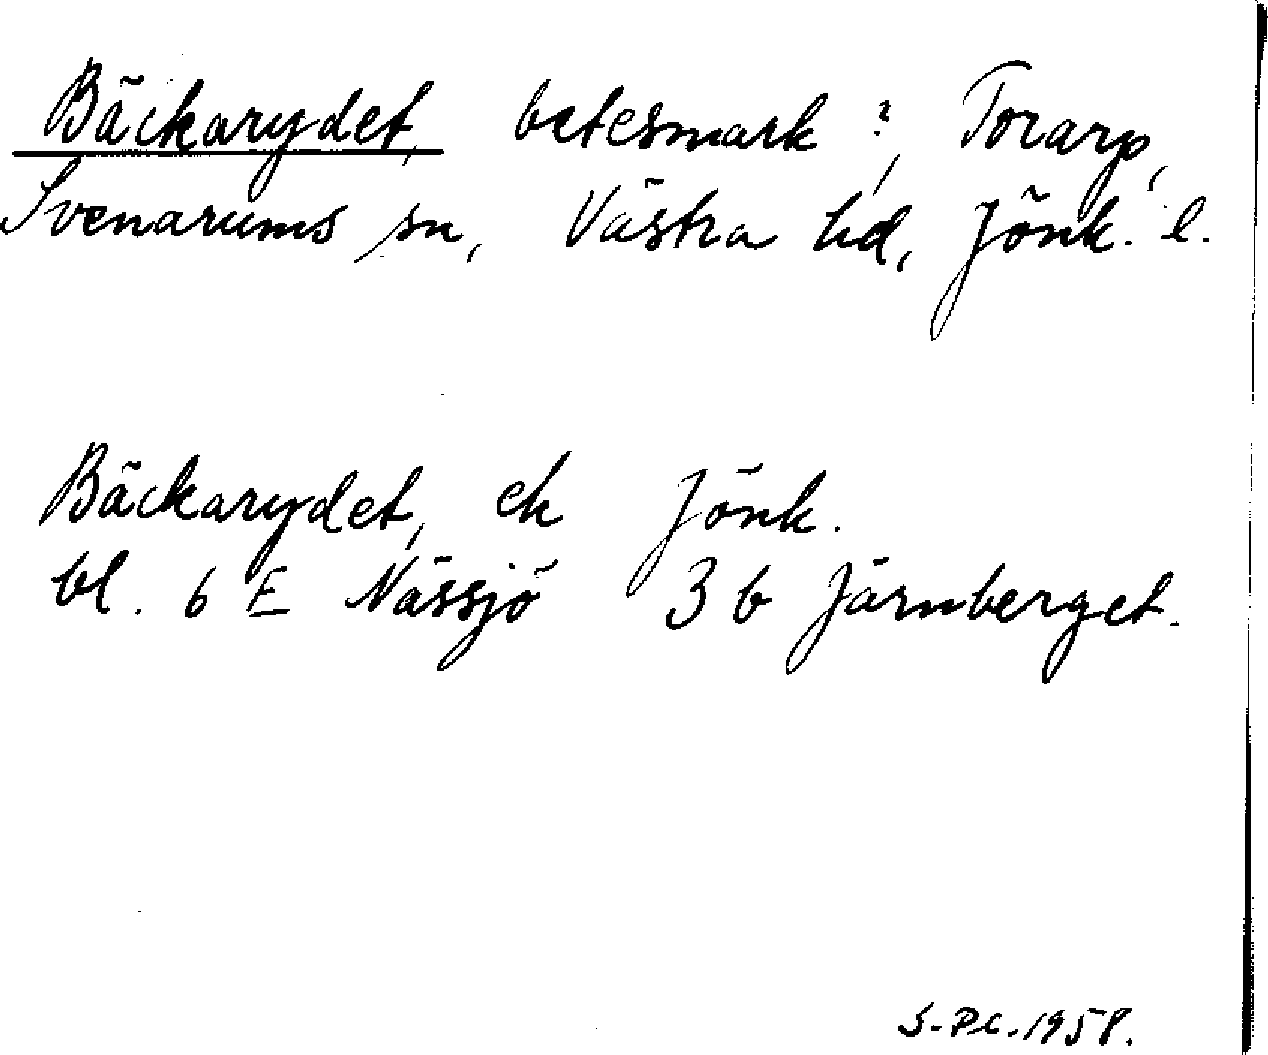 Bäckarydet, betesmark?, Torarp,
Svenarums sn, Västra hd, Jönk. l.
Bäckarydet, ek Jönk.
bl. 6 E Nässjö 3 b Järnberget.
S-Dec. 1958.